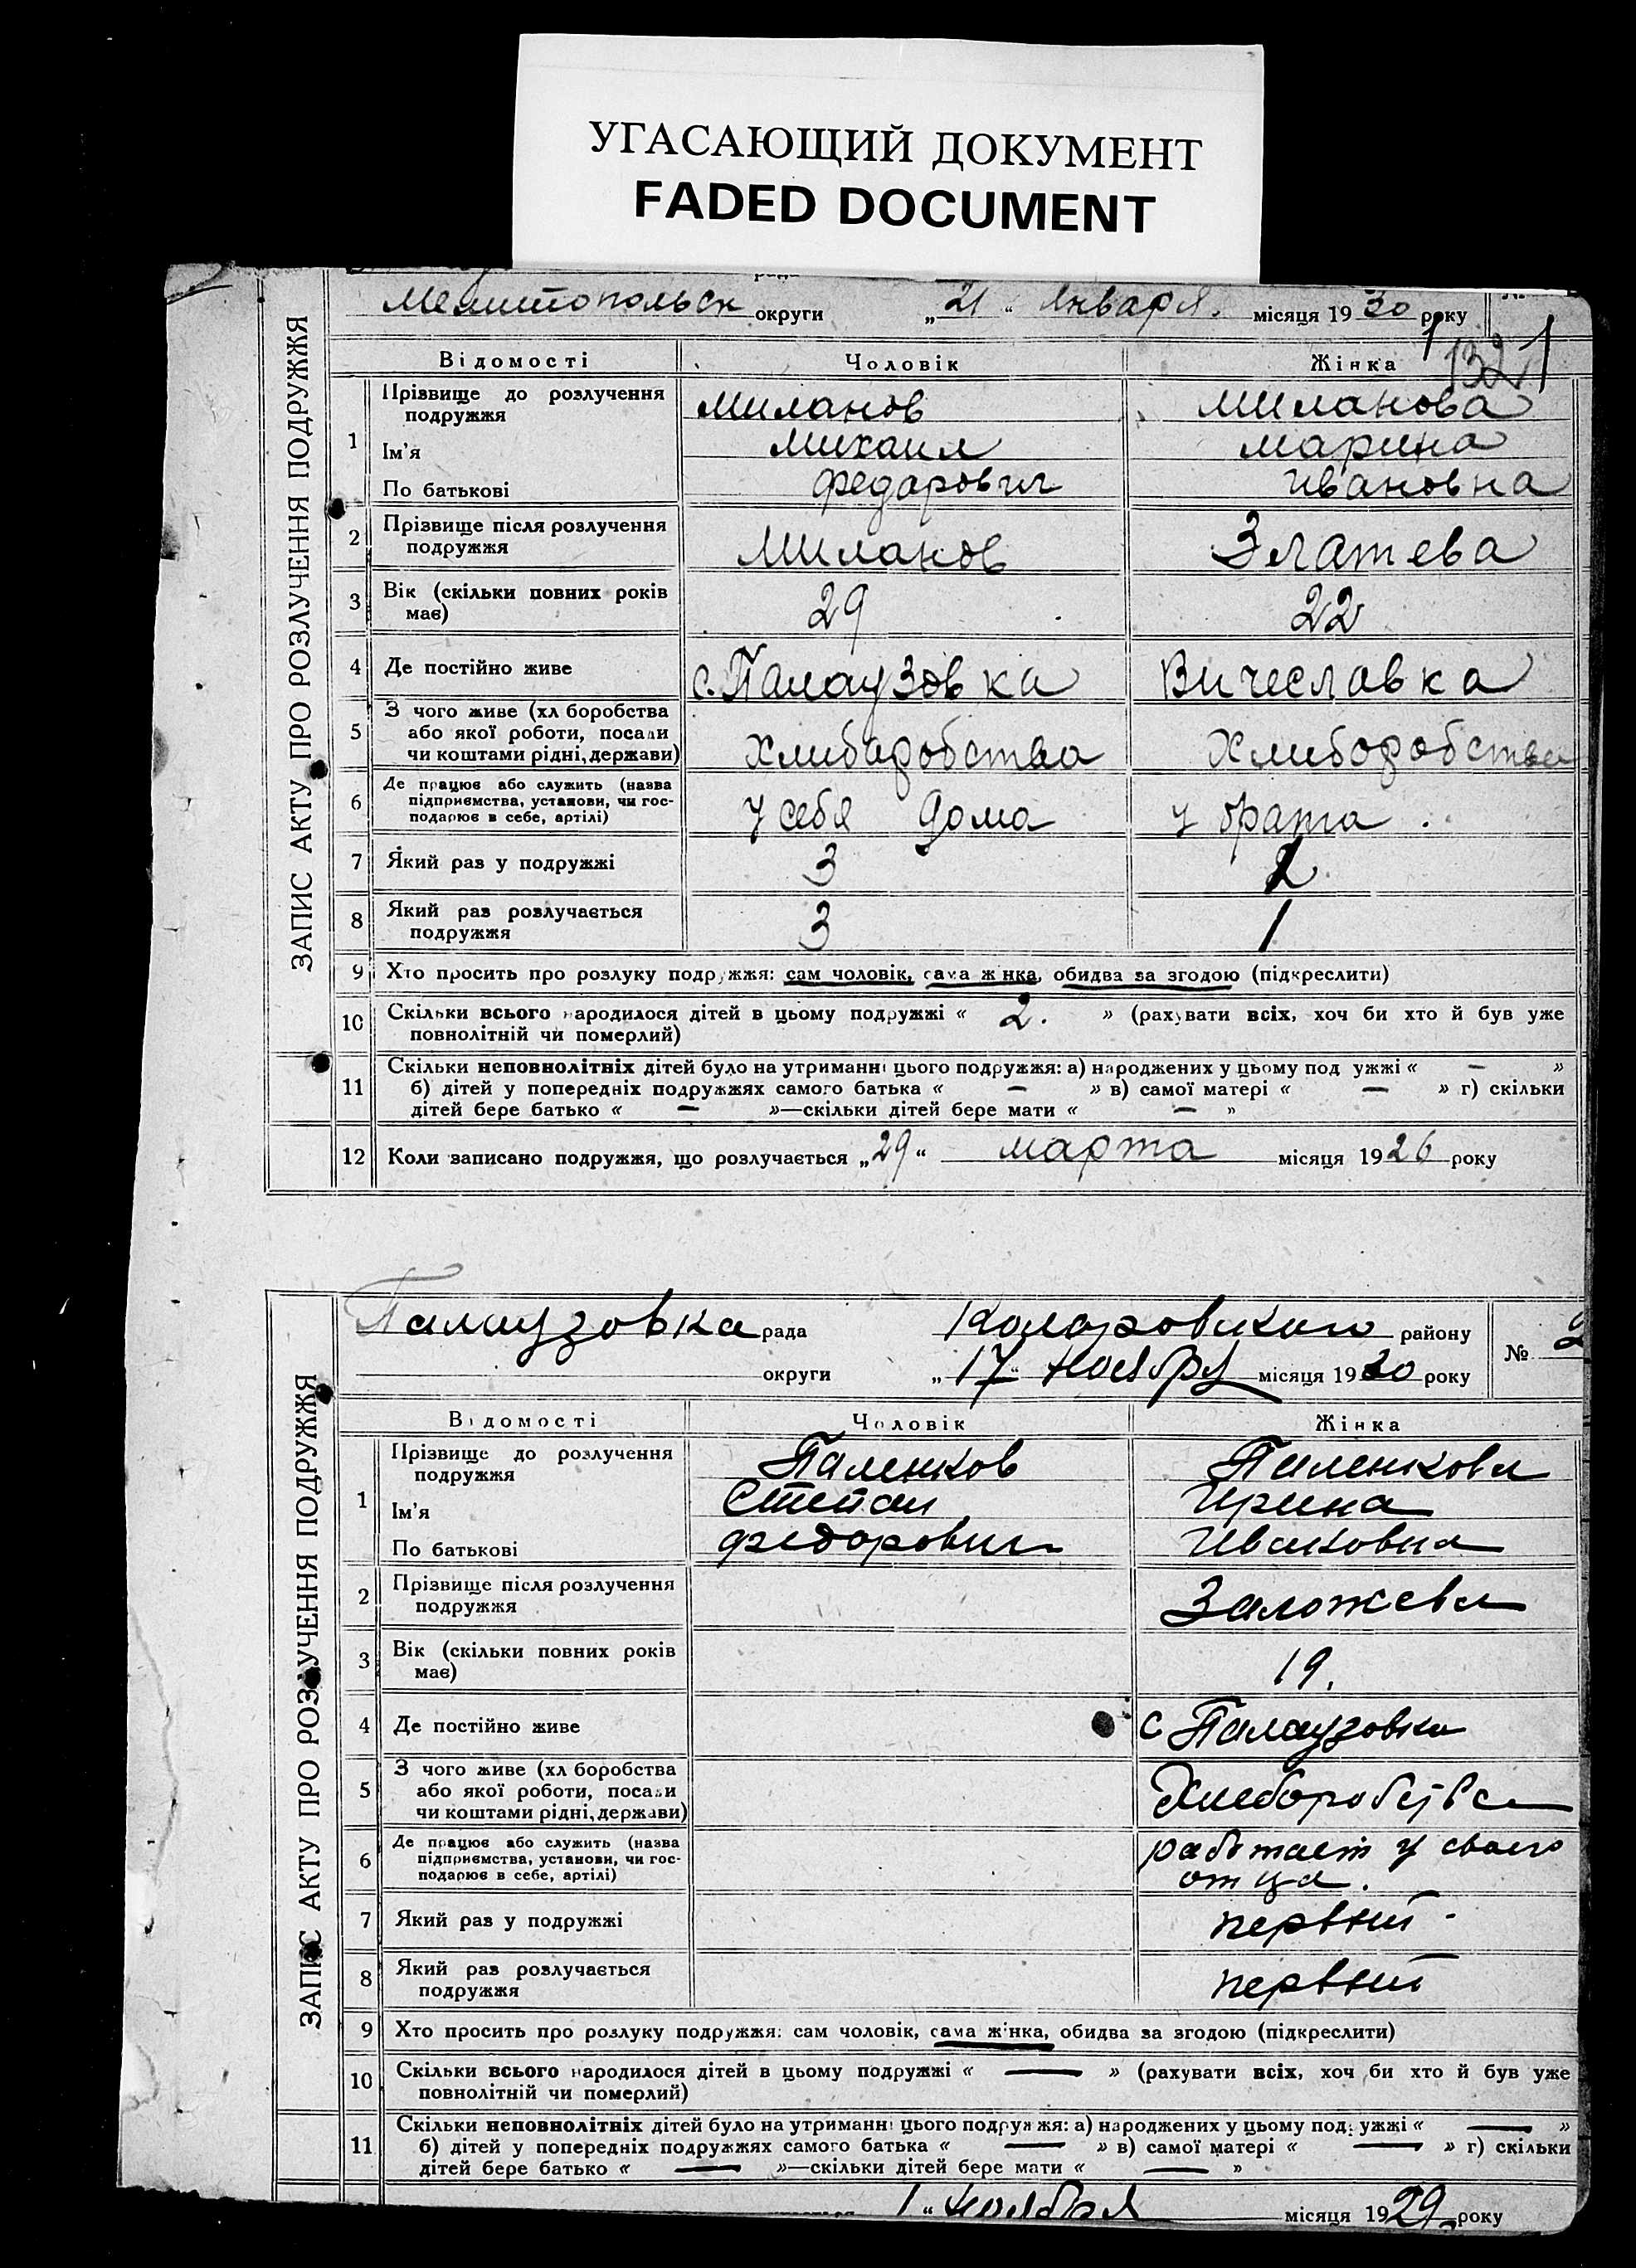 УГАСАЮЩИЙ ДОКУМЕНТ
FADED DOCUMENT
Мелитопольск округи „21“ Января. місяця 1930 року
1321
Відомості Чоловік Жінка
ЗАПИС АКТУ ПРО РОЗЛУЧЕННЯ ПОДРУЖЖЯ
1 Прізвище до розлучення подружжя Миланов Миланова
Ім'я Михаил Марина
По батькові Федарович Ивановна
2 Прізвище після розлучення подружжя Миланов Златева
3 Вік (скільки повних років має) 29 22
4 Де постійно живе с. Палаузовка Вичеславка
5 З чого живе (хл боробства або якої роботи, посади чи коштами рідні, держави) Хлибаробства Хлиборобства
6 Де працює або служить (назва підприємства, установи, чи господарює в себе, артілі) у себя дома у брата.
7 Який раз у подружжі 3 2
8 Який раз розлучається подружжя 3 1
9 Хто просить про розлуку подружжя: сам чоловік, сама жінка, обидва за згодою (підкреслити)
10 Скільки всього народилося дітей в цьому подружжі « 2. » (рахувати всіх, хоч би хто й був уже
повнолітній чи померлий)
11 Скільки неповнолітніх дітей було на утриманні цього подружжя: а) народжених у цьому подружжі « — »
б) дітей у попередніх подружжях самого батька « — » в) самої матері « — » г) скільки
дітей бере батько « — »—скільки дітей бере мати « — »
12 Коли записано подружжя, що розлучається „29“ марта місяця 1926 року
Палаузовка рада Коларовского району № 2
округи „17“ Ноября місяця 1930 року
Відомості Чоловік Жінка
ЗАПИС АКТУ ПРО РОЗЛУЧЕННЯ ПОДРУЖЖЯ
1 Прізвище до розлучення подружжя Паленков Паленкова
Ім'я Степан Ирина
По батькові Федорович Ивановна
2 Прізвище після розлучення подружжя Заложева
3 Вік (скільки повних років має) 19.
4 Де постійно живе с Палаузовка
5 З чого живе (хл боробства або якої роботи, посади чи коштами рідні, держави) Хлеборобства
6 Де працює або служить (назва підприємства, установи, чи господарює в себе, артілі) работает у своего отца.
7 Який раз у подружжі первый
8 Який раз розлучається подружжя первый
9 Хто просить про розлуку подружжя: сам чоловік, сама жінка, обидва за згодою (підкреслити)
10 Скільки всього народилося дітей в цьому подружжі « — » (рахувати всіх, хоч би хто й був уже
повнолітній чи померлий)
11 Скільки неповнолітніх дітей було на утриманні цього подружжя: а) народжених у цьому подружжі « — »
б) дітей у попередніх подружжях самого батька « — » в) самої матері « — » г) скільки
дітей бере батько « — »—скільки дітей бере мати « — »
1“ Ноября місяця 1929 року